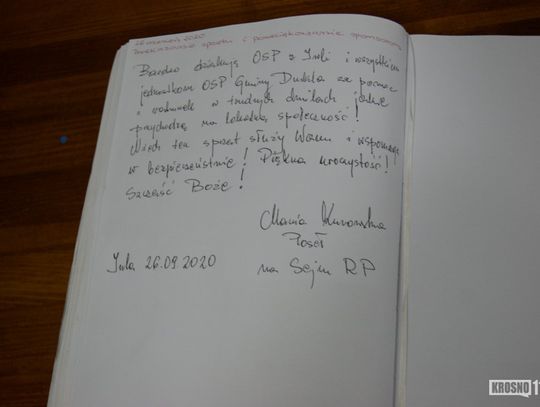 26 wrzesień 2020
Przekazanie sprzętu i podziękowanie sponsorom
Bardzo dziękuję OSP z Iwli i wszystkim
jednostkom OSP Gminy Dukla za pomoc
i ratunek w trudnych chwilach jakie
przychodzą na lokalną społeczność!
Niech ten sprzęt służy Wam i wspomaga
w bezpieczeństwie! Piękna uroczystość!
Szczęść Boże!
Maria Kurowska
Poseł
na Sejm RP
Iwla 26.09.2020
KROSNO